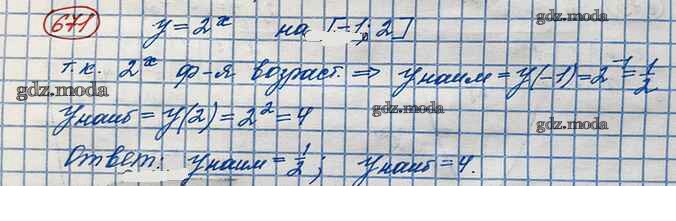 671 y = 2^x на [-1; 2]
gdz.moda
т.к. 2^x ф-я возраст. ⇒ y наим = y(-1) = 2^-1 = 1/2
gdz.moda gdz.moda
y наиб = y(2) = 2^2 = 4
gdz.moda
Ответ: y наим = 1/2; y наиб = 4.
gdz.moda gdz.moda